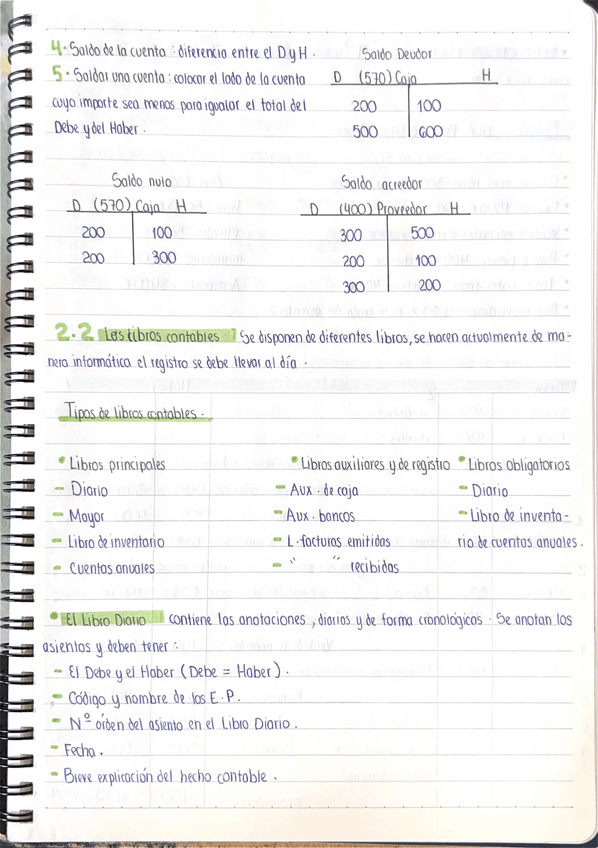 4. Saldo de la cuenta : diferencia entre el D y H .
5. Saldar una cuenta : colocar el lado de la cuenta
cuyo importe sea menos para igualar el total del
Debe y del Haber .
Saldo Deudor
D (570) Caja H
200 100
500 600
Saldo nulo
D (570) Caja H
200 100
200 300
Saldo acreedor
D (400) Proveedor H
300 500
200 100
300 200
2.2 Los libros contables : Se disponen de diferentes libros, se hacen actualmente de ma-
nera informática el registro se debe llevar al día .
Tipos de libros contables .
• Libros principales
- Diario
- Mayor
- Libro de inventario
- Cuentas anuales
• Libros auxiliares y de registro
- Aux . de caja
- Aux . bancos
- L. facturas emitidas
- " " recibidas
• Libros obligatorios
- Diario
- Libro de inventa-
rio de cuentas anuales .
• El Libro Diario : contiene las anotaciones , diarias y de forma cronológicas . Se anotan los
asientos y deben tener :
- El Debe y el Haber ( Debe = Haber ) .
- Código y nombre de los E.P.
- Nº órden del asiento en el Libro Diario .
- Fecha .
- Breve explicación del hecho contable .